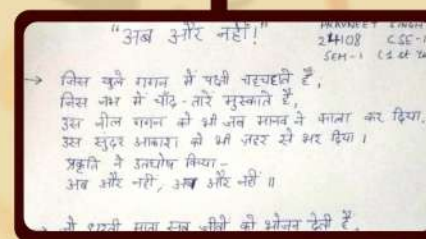 "अब और नहीं!"
SINGH
24108 CSE-1
SEM-1 (1st
→ जिस खुले गगन में पक्षी चहचहाते हैं,
जिस नभ में चाँद-तारे मुस्काते हैं,
उस नील गगन को भी जब मानव ने काला कर दिया,
उस सुंदर आकाश को भी ज़हर से भर दिया।
प्रकृति ने उदघोष किया –
अब और नहीं, अब और नहीं॥
धरती माता सब जीवों को भोजन देती है,